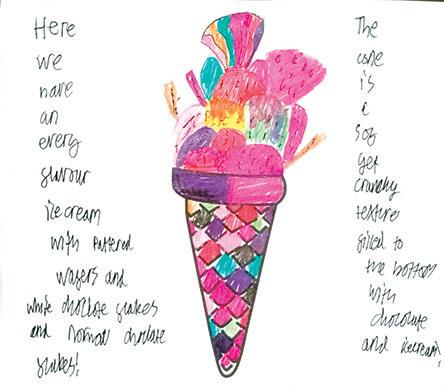 Here
we
have
an
every
flavour
ice cream
with patterned
wafers and
white choclote flakes
and normal choclate
flakes!
The
cone
is
a
soft
yet
crunchy
texture
filled to
the bottom
with
chocolate
and icecream!